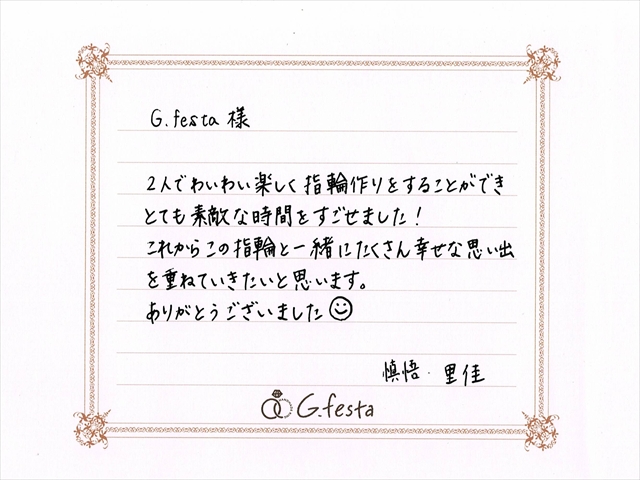 G.festa 様
2人でわいわい楽しく指輪作りをすることができ
とても素敵な時間をすごせました！
これからこの指輪と一緒にたくさん幸せな思い出
を重ねていきたいと思います。
ありがとうございました☺
慎悟・里佳
G.festa